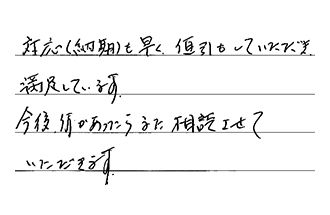 対応(納期)も早く、値引もしていただき
満足しています。
今後、何かあったらまた相談させて
いただきます。